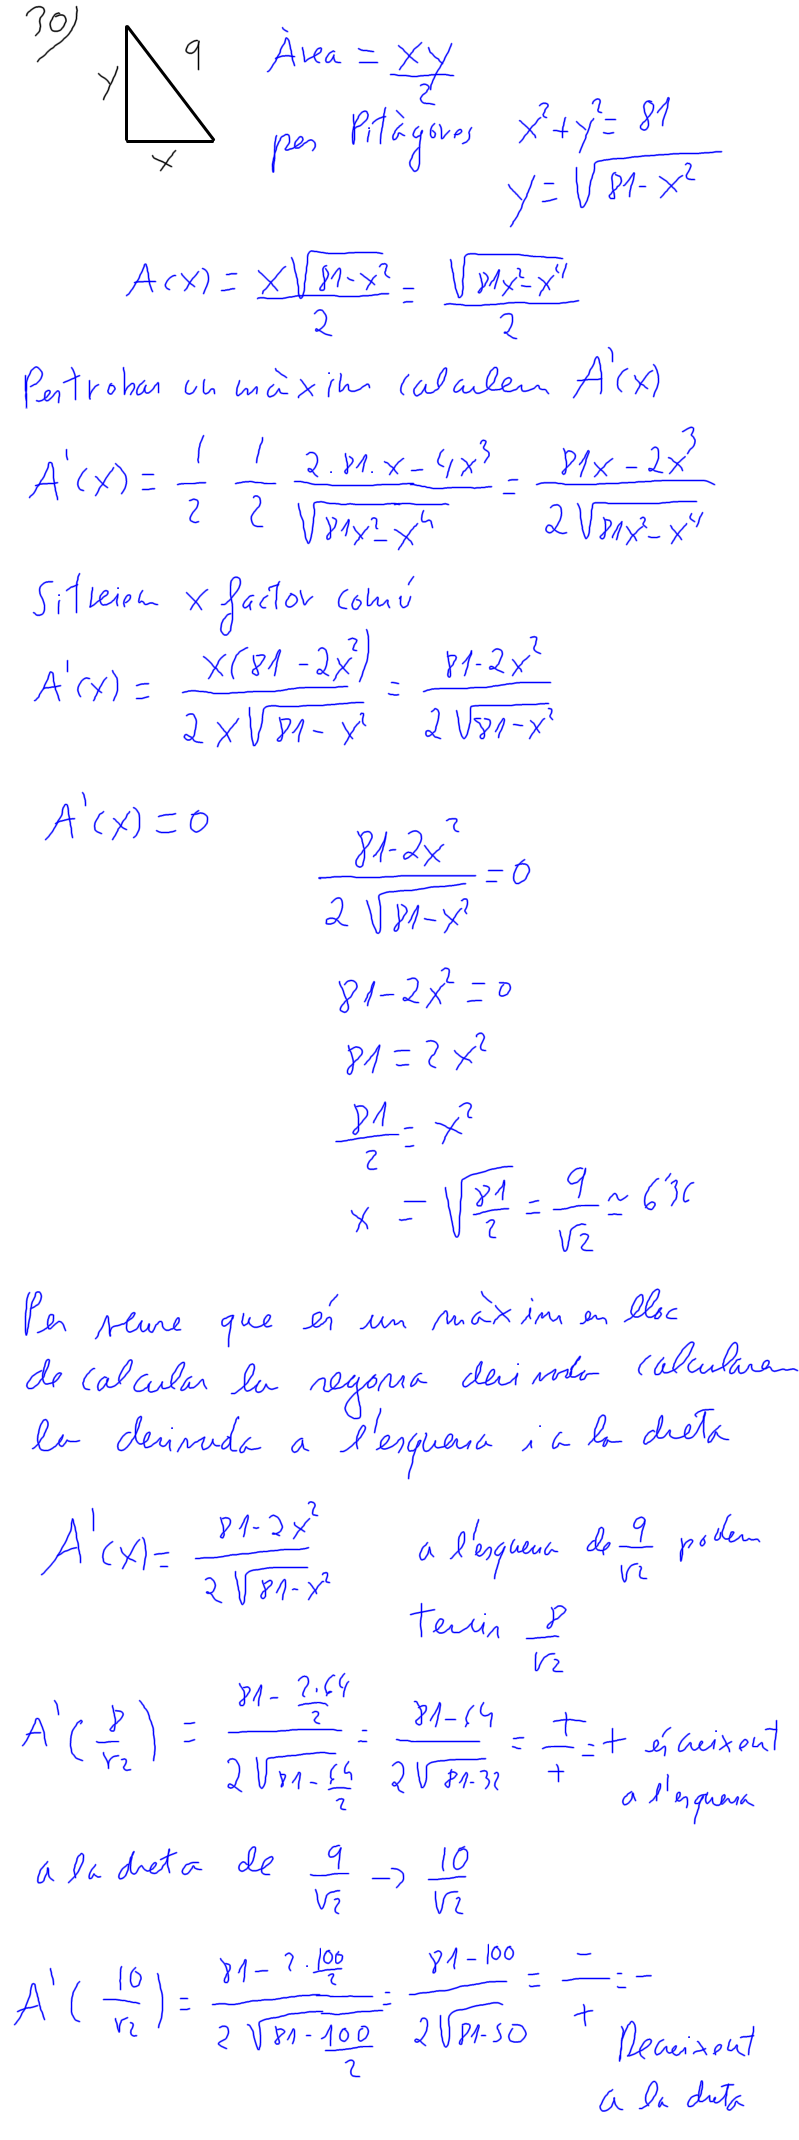 30)
y 9 x
Àrea = xy/2
per Pitàgores x² + y² = 81
y = √(81 - x²)
A(x) = x√(81-x²)/2 = √(81x²-x⁴)/2
Per trobar un màxim calculem A'(x)
A'(x) = 1/2 1/2 (2·81·x - 4x³)/√(81x²-x⁴) = (81x - 2x³)/(2√(81x²-x⁴))
Si treiem x factor comú
A'(x) = x(81-2x²)/(2x√(81-x²)) = (81-2x²)/(2√(81-x²))
A'(x) = 0
(81-2x²)/(2√(81-x²)) = 0
81-2x² = 0
81 = 2x²
81/2 = x²
x = √(81/2) = 9/√2 ≃ 6'36
Per veure que és un màxim en lloc
de calcular la segona derivada calcularem
la derivada a l'esquerra i a la dreta
A'(x) = (81-2x²)/(2√(81-x²)) a l'esquerra de 9/√2 podem
tenir 8/√2
A'(8/√2) = (81 - 2·64/2)/(2√(81-64/2)) = (81-64)/(2√(81-32)) = +/+ = + és creixent
a l'esquerra
a la dreta de 9/√2 → 10/√2
A'(10/√2) = (81-2·100/2)/(2√(81-100/2)) = (81-100)/(2√(81-50)) = -/+ = -
Decreixent
a la dreta